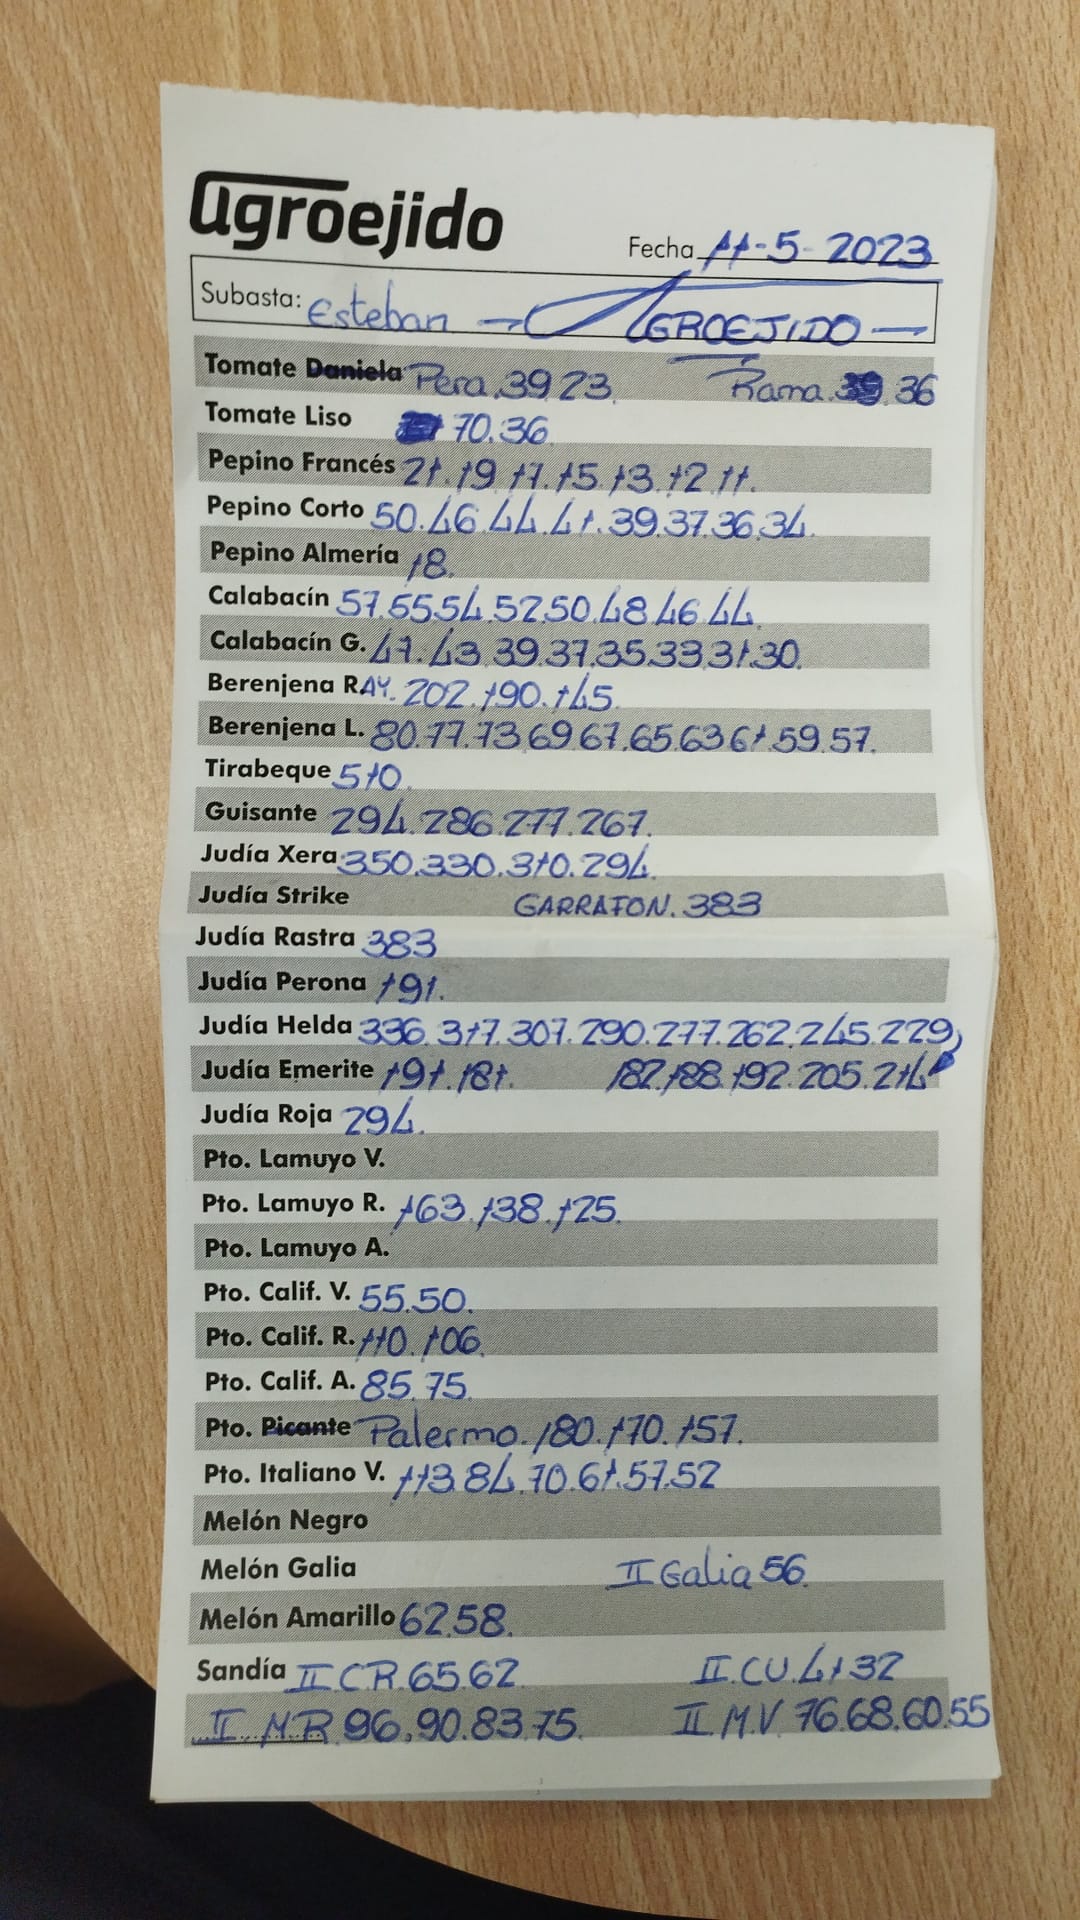 agroejido
Fecha 11-5-2023
Subasta: Esteban → AGROEJIDO —
Tomate Daniela Pera.39.23. Rama.39.36
Tomate Liso 70.36.
Pepino Francés 21.19.17.15.13.12.11.
Pepino Corto 50.46.44.41.39.37.36.34.
Pepino Almería 18.
Calabacín 57.55.54.52.50.48.46.44.
Calabacín G. 47.43.39.37.35.33.31.30.
Berenjena RAY. 202.190.145.
Berenjena L. 80.77.73.69.67.65.63.61.59.57.
Tirabeque 510.
Guisante 294.286.277.267.
Judía Xera 350.330.310.294.
Judía Strike GARRAFON.383
Judía Rastra 383
Judía Perona 191.
Judía Helda 336.317.307.290.277.262.245.229
Judía Emerite 191.181. 182.188.192.205.214
Judía Roja 294.
Pto. Lamuyo V.
Pto. Lamuyo R. 163.138.125.
Pto. Lamuyo A.
Pto. Calif. V. 55.50.
Pto. Calif. R. 110.106.
Pto. Calif. A. 85.75.
Pto. Picante Palermo.180.170.157.
Pto. Italiano V. 113.84.70.61.57.52
Melón Negro
Melón Galia II Galia 56.
Melón Amarillo 62.58.
Sandía II.CR.65.62. II.CU.41.32
II.MR.96.90.83.75. II.M.V 76.68.60.55